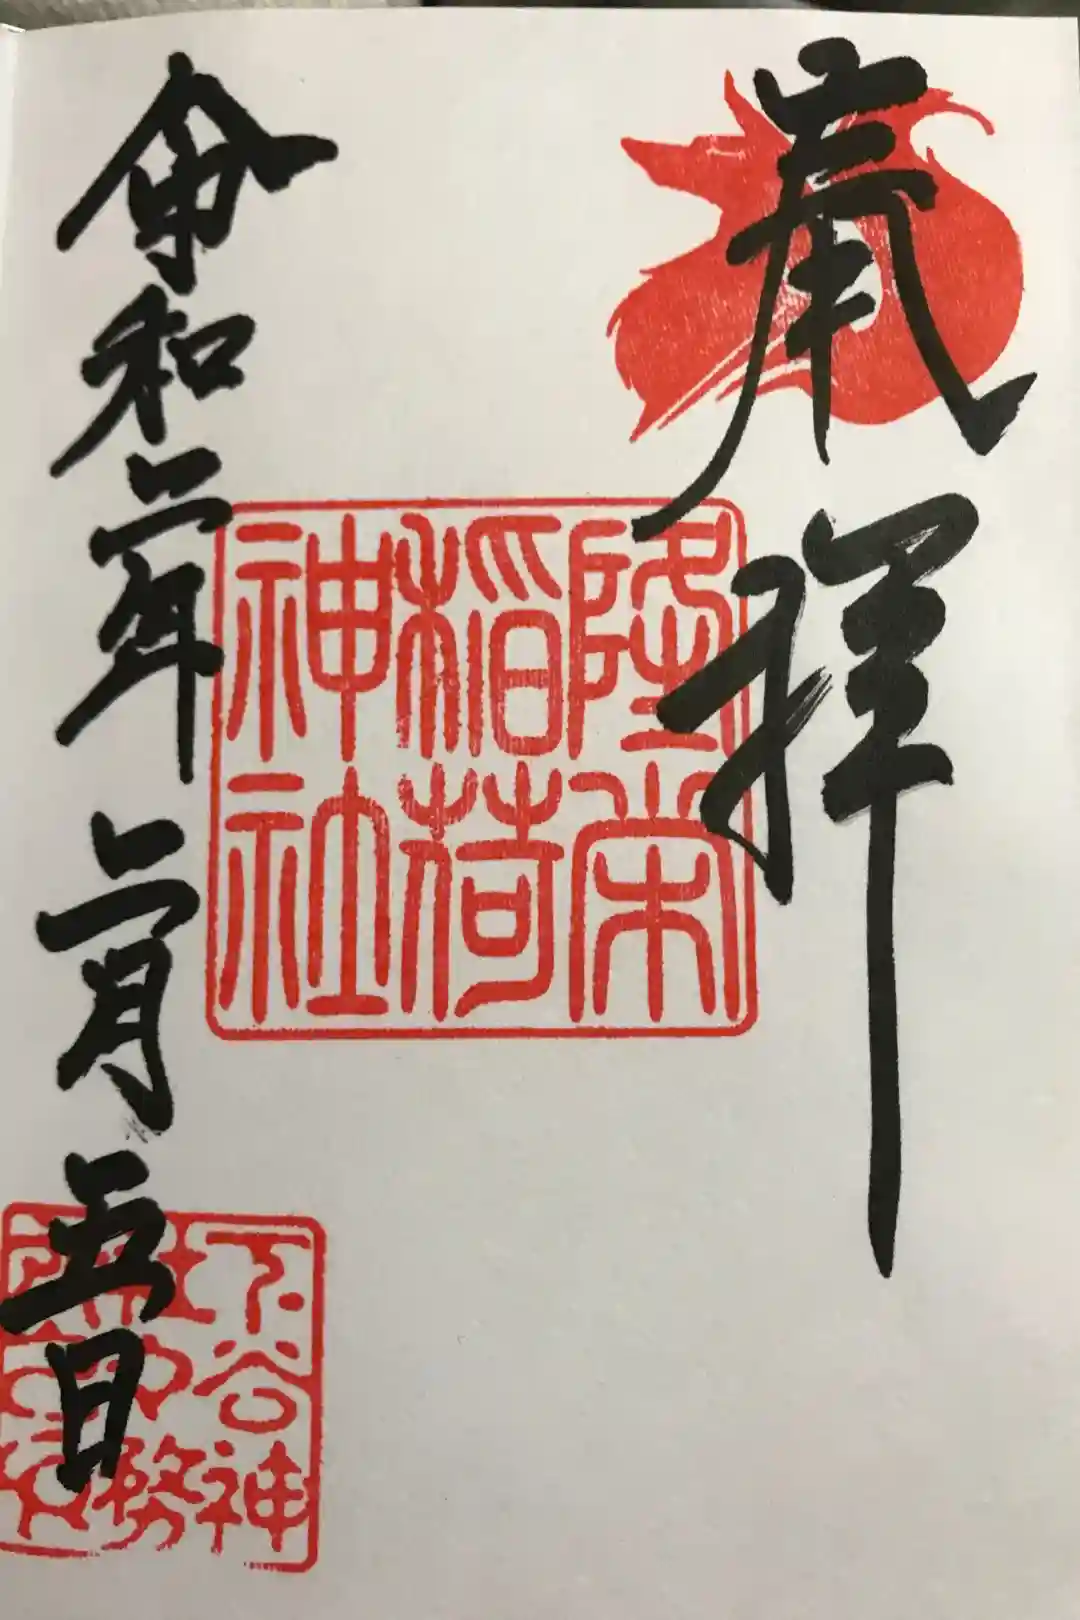 奉拝
隆栄
稲荷
神社
令和二年二月五日
下谷神
社
務